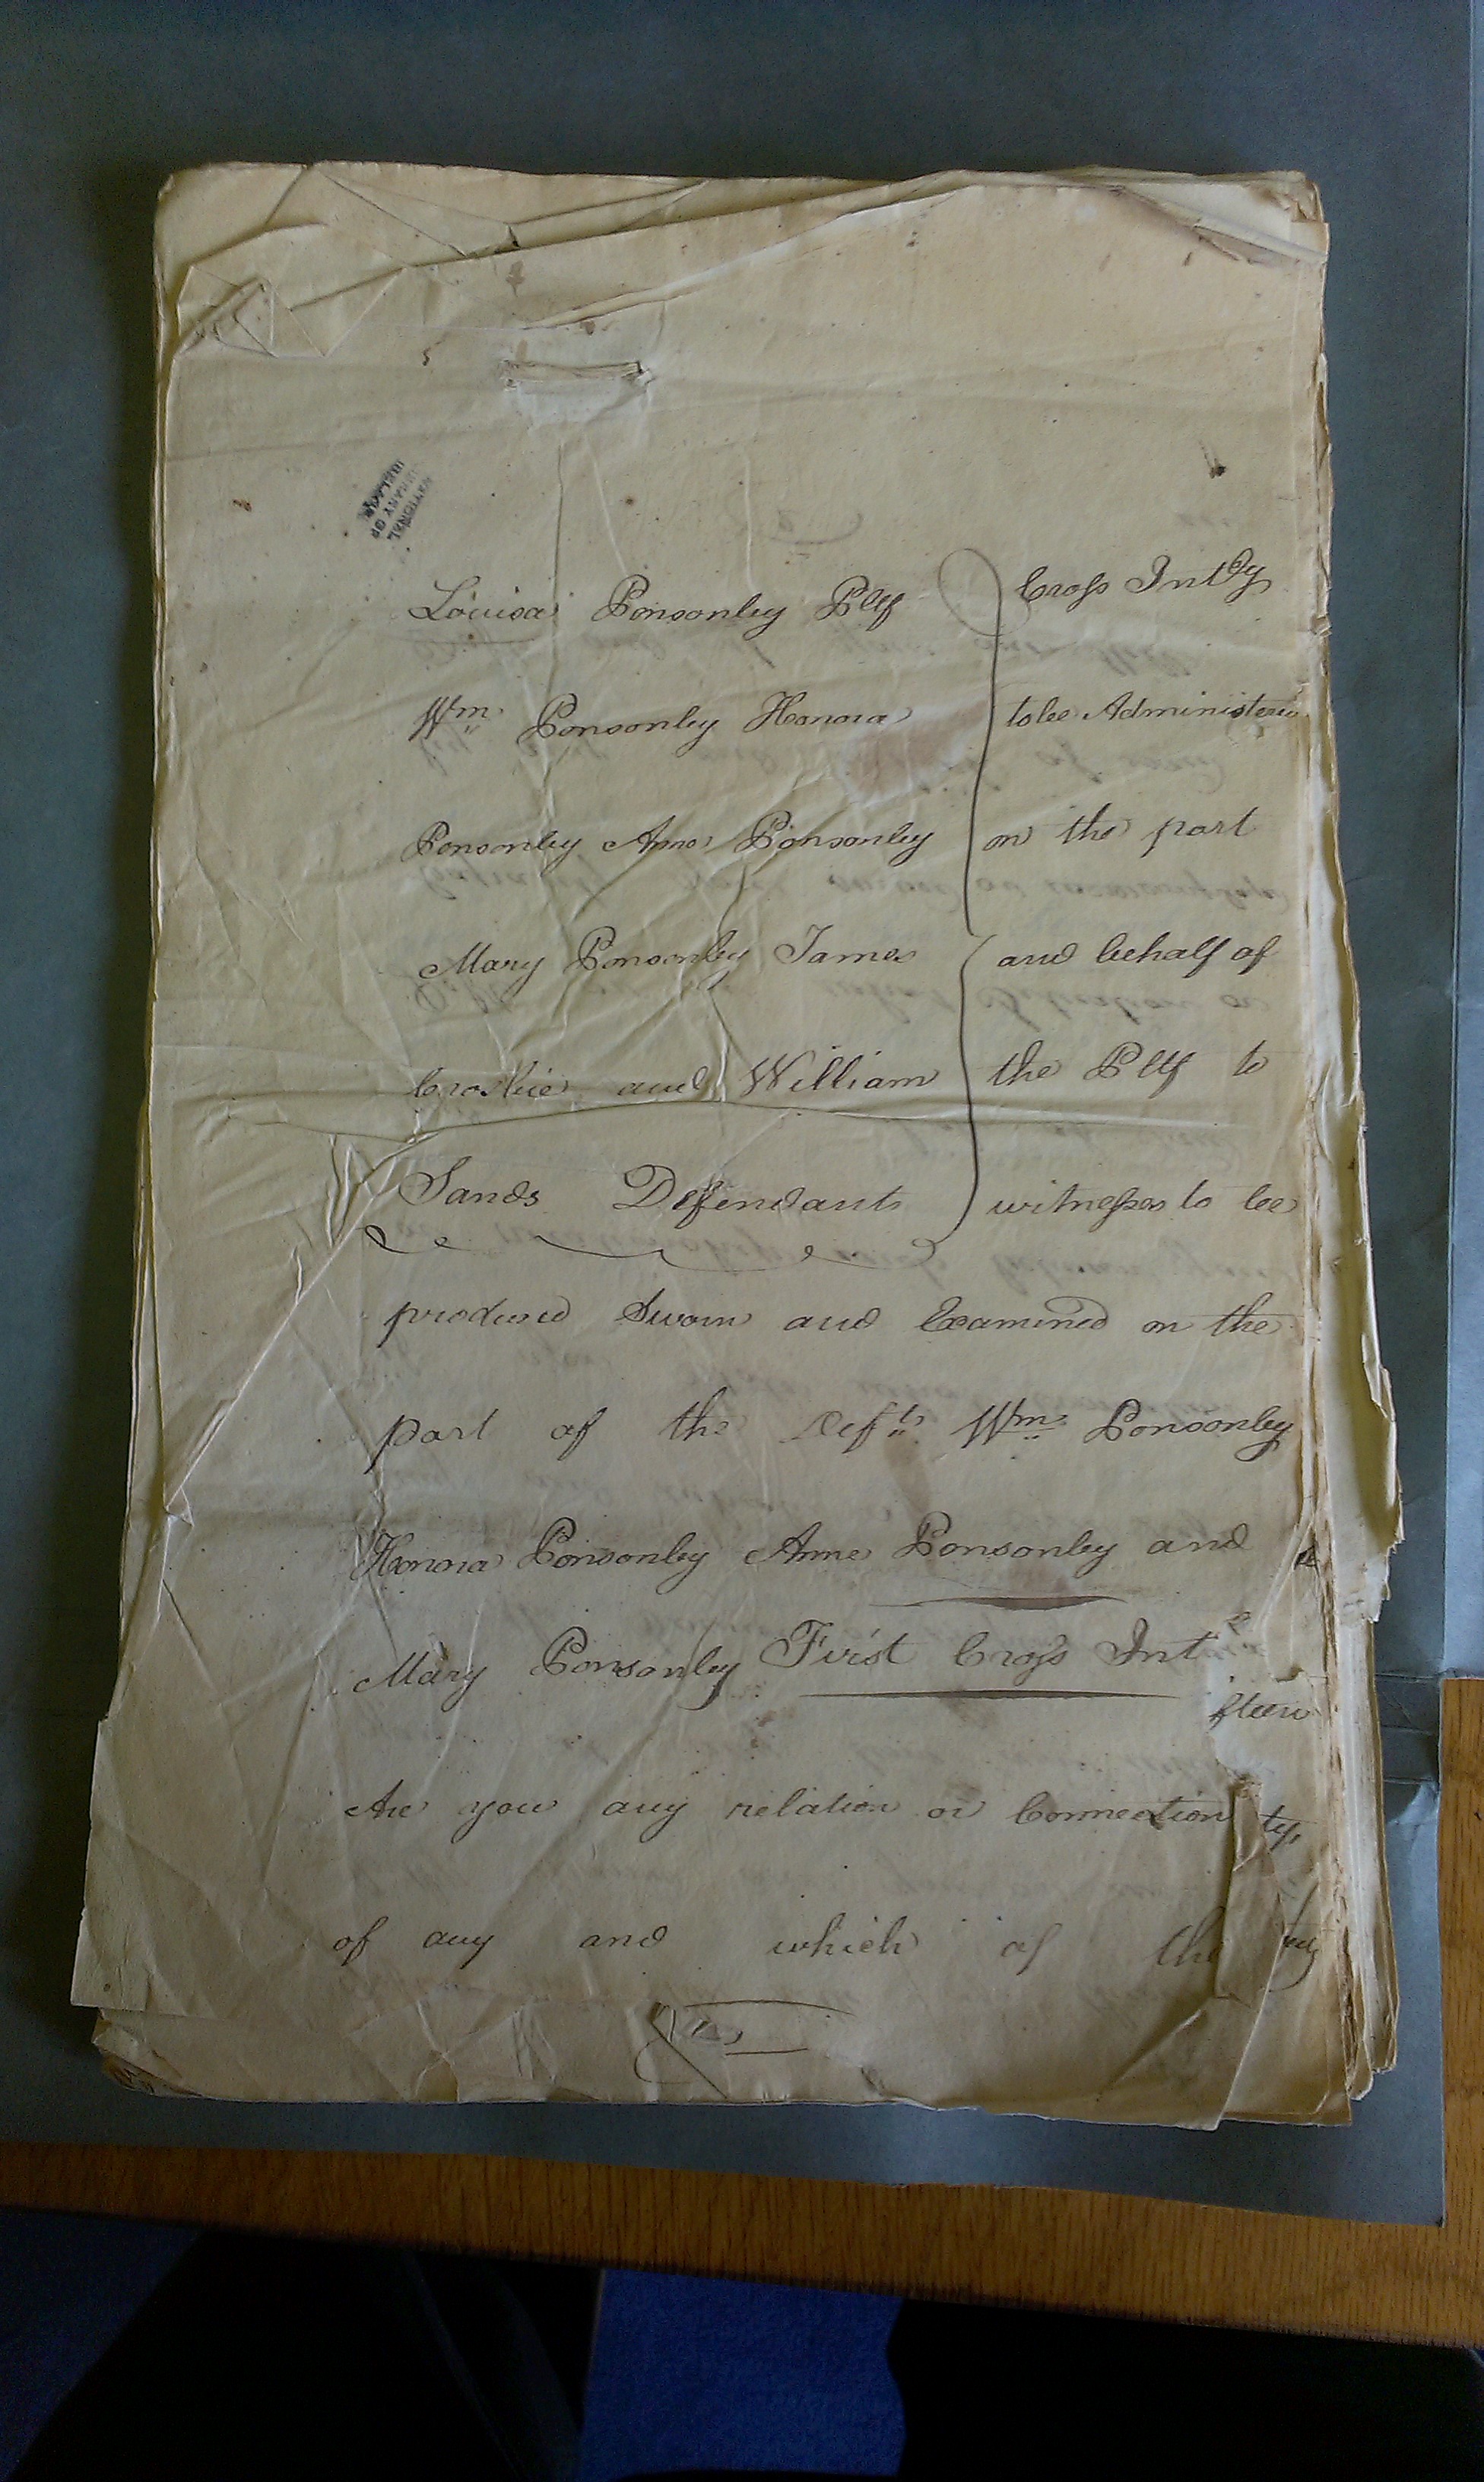 NATIONAL
LIBRARY OF
IRELAND
Louisa Ponsonby Pltf
Wm Ponsonby Honora
Ponsonby Anne Ponsonby
Mary Ponsonby James
Croskie and William
Sands Defendants
Cross Intry
to be Administered
on the part
and behalf of
the Pltf to
witnesses to be
produced Sworn and Examined on the
part of the Defts Wm Ponsonby
Honora Ponsonby Anne Ponsonby and
Mary Ponsonby First Cross Inty
Are you any relation or Connection
of any and which of the